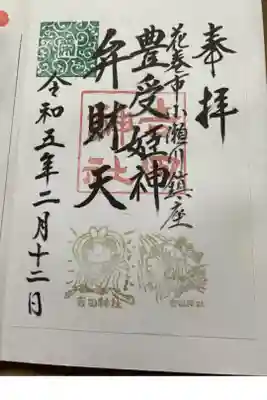 奉拝
花巻市小瀬川鎮座
豊受姫神
弁財天
令和五年二月十二日
吉田神社
吉田神社